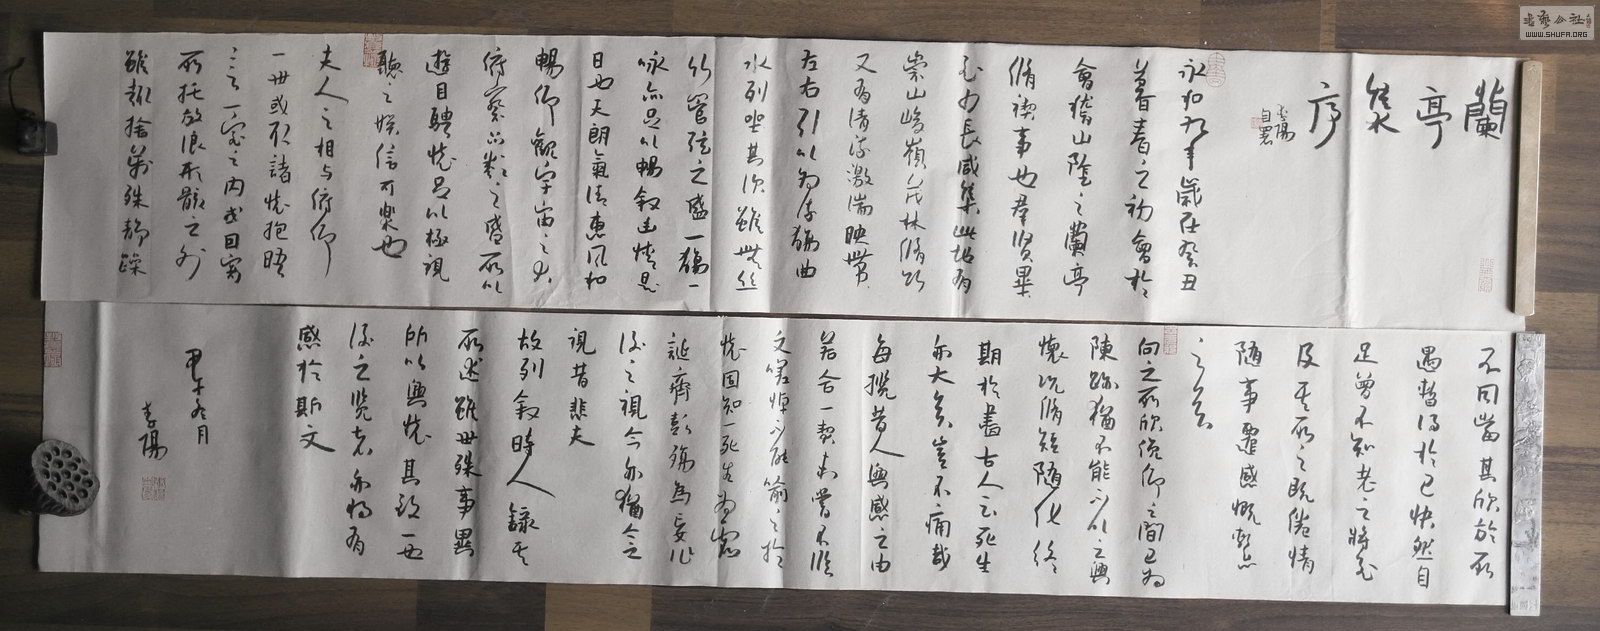 蘭亭集序
李陽
自署
永和九年歲在癸丑
暮春之初會於
會稽山陰之蘭亭
脩禊事也群賢畢
至少長咸集此地有
崇山峻嶺茂林脩竹
又有清流激湍映帶
左右引以為流觴曲
水列坐其次雖無絲
竹管弦之盛一觴一
咏亦足以暢敘幽情是
日也天朗氣清惠風和
暢仰觀宇宙之大
俯察品類之盛所以
遊目騁懷足以極視
聽之娛信可樂也
夫人之相與俯仰
一世或取諸懷抱晤
言一室之內或因寄
所托放浪形骸之外
雖趣捨萬殊靜躁
不同當其欣於所
遇暫得於己快然自
足曾不知老之將至
及其所之既倦情
隨事遷感慨系
之矣
向之所欣俛仰之間已為
陳跡猶不能不以之興
懷況脩短隨化終
期於盡古人云死生
亦大矣豈不痛哉
每攬昔人興感之由
若合一契未嘗不臨
文嗟悼不能喻之於
懷固知一死生為虛
誕齊彭殤為妄作
後之視今亦猶今之
視昔悲夫
故列敘時人錄其
所述雖世殊事異
所以興懷其致一也
後之覽者亦將有
感於斯文
甲午冬月
李陽
書藝公社
WWW.SHUFA.ORG